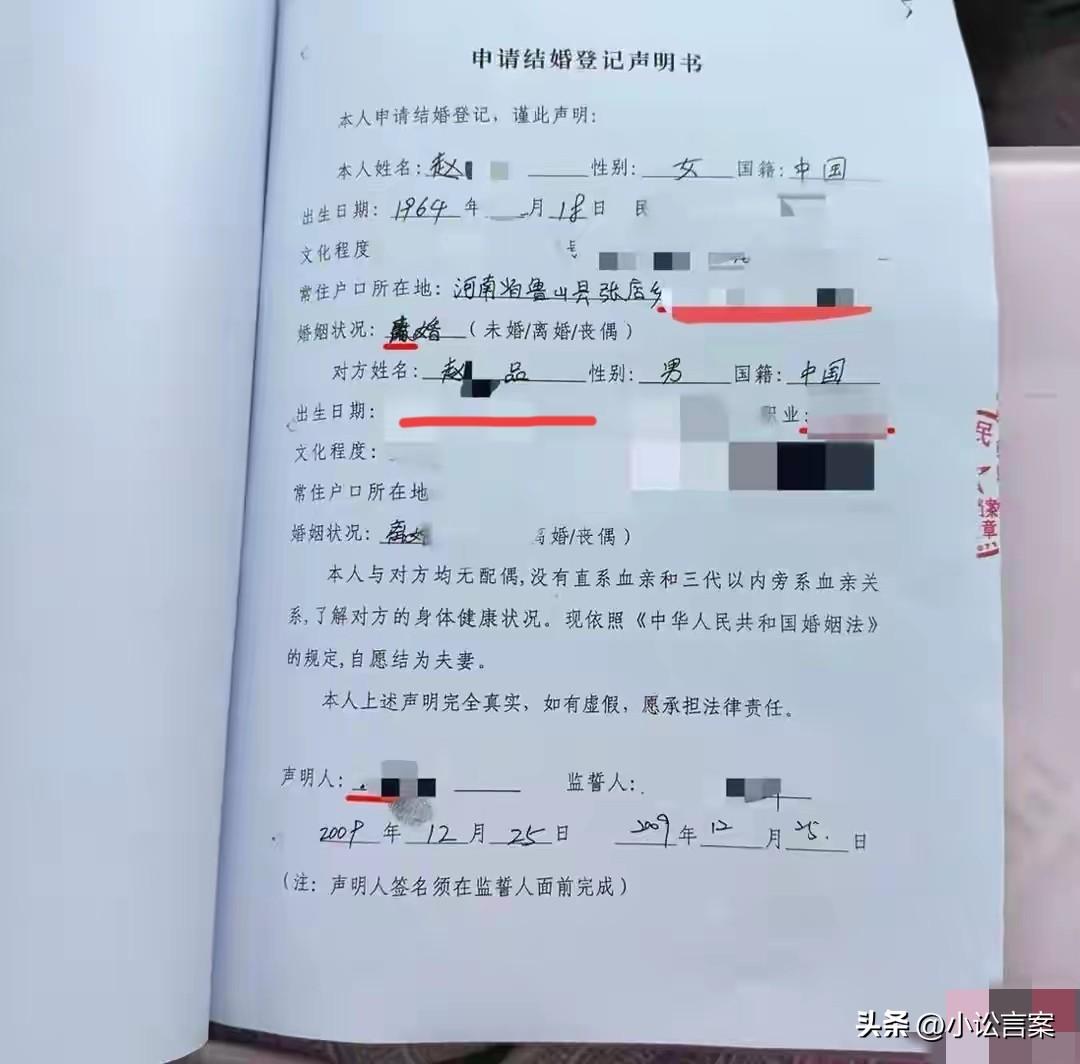 申请结婚登记声明书
本人申请结婚登记，谨此声明：
本人姓名：赵 性别：女 国籍：中国
出生日期：1964年 月18日 民
文化程度
常住户口所在地：河南省鲁山县张店乡
婚姻状况：离婚（未婚/离婚/丧偶）
对方姓名：赵 品 性别：男 国籍：中国
出生日期： 职业：
文化程度：
常住户口所在地
婚姻状况：离婚 离婚/丧偶）
本人与对方均无配偶,没有直系血亲和三代以内旁系血亲关
系,了解对方的身体健康状况。现依照《中华人民共和国婚姻法》
的规定,自愿结为夫妻。
本人上述声明完全真实，如有虚假，愿承担法律责任。
声明人： 监誓人：
2009年12月25日 2009年12月25日
（注：声明人签名须在监誓人面前完成）
民
档案
章
头条 @小讼言案